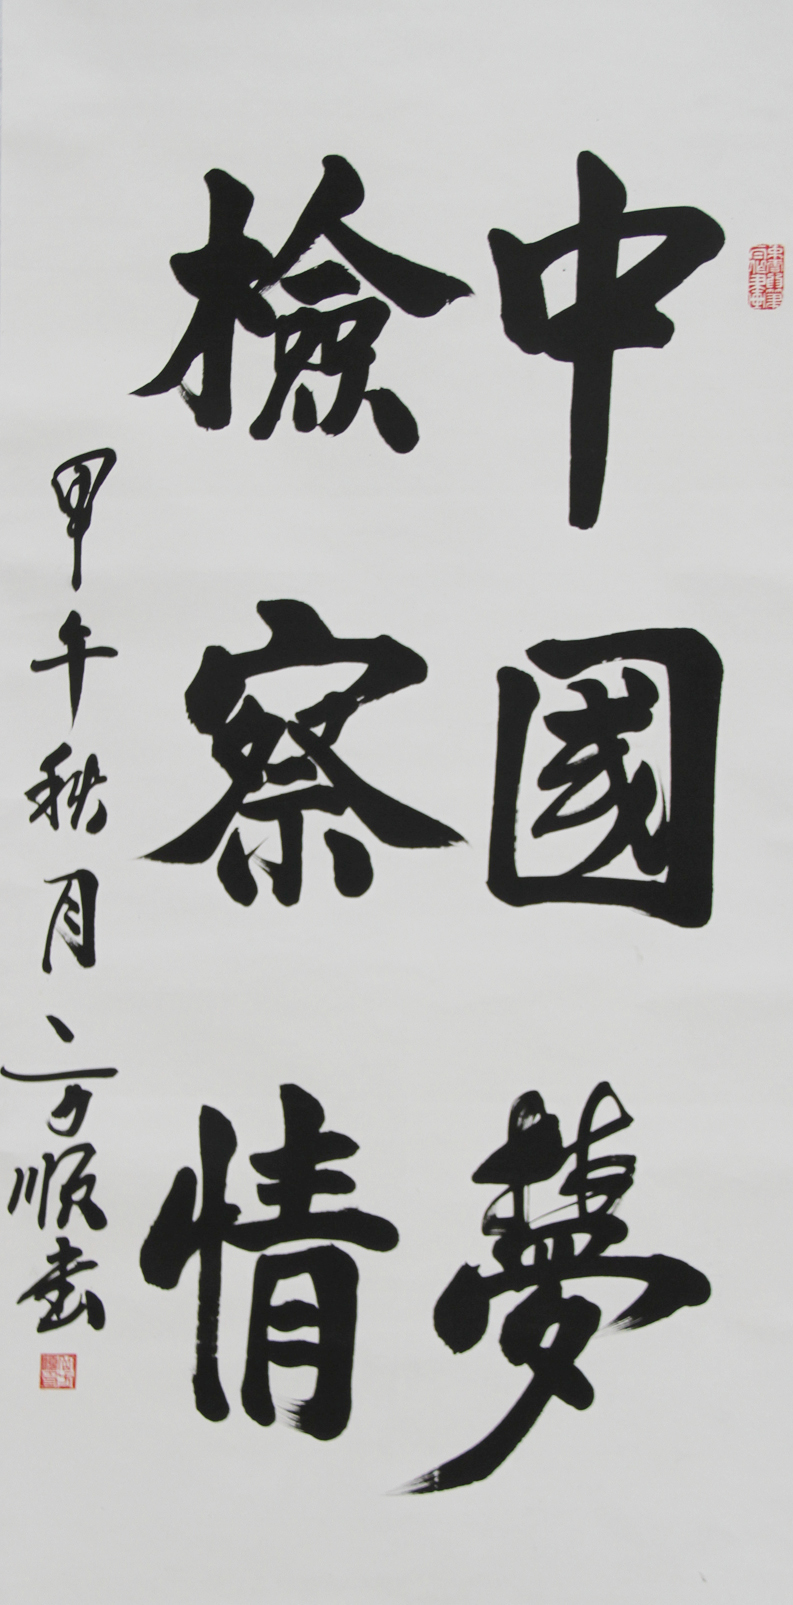 中國夢
檢察情
甲午秋月方順書